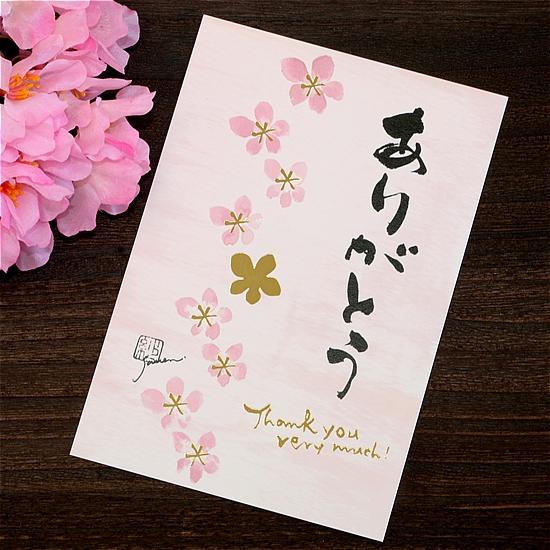 ありがとう
Thank you
very much!